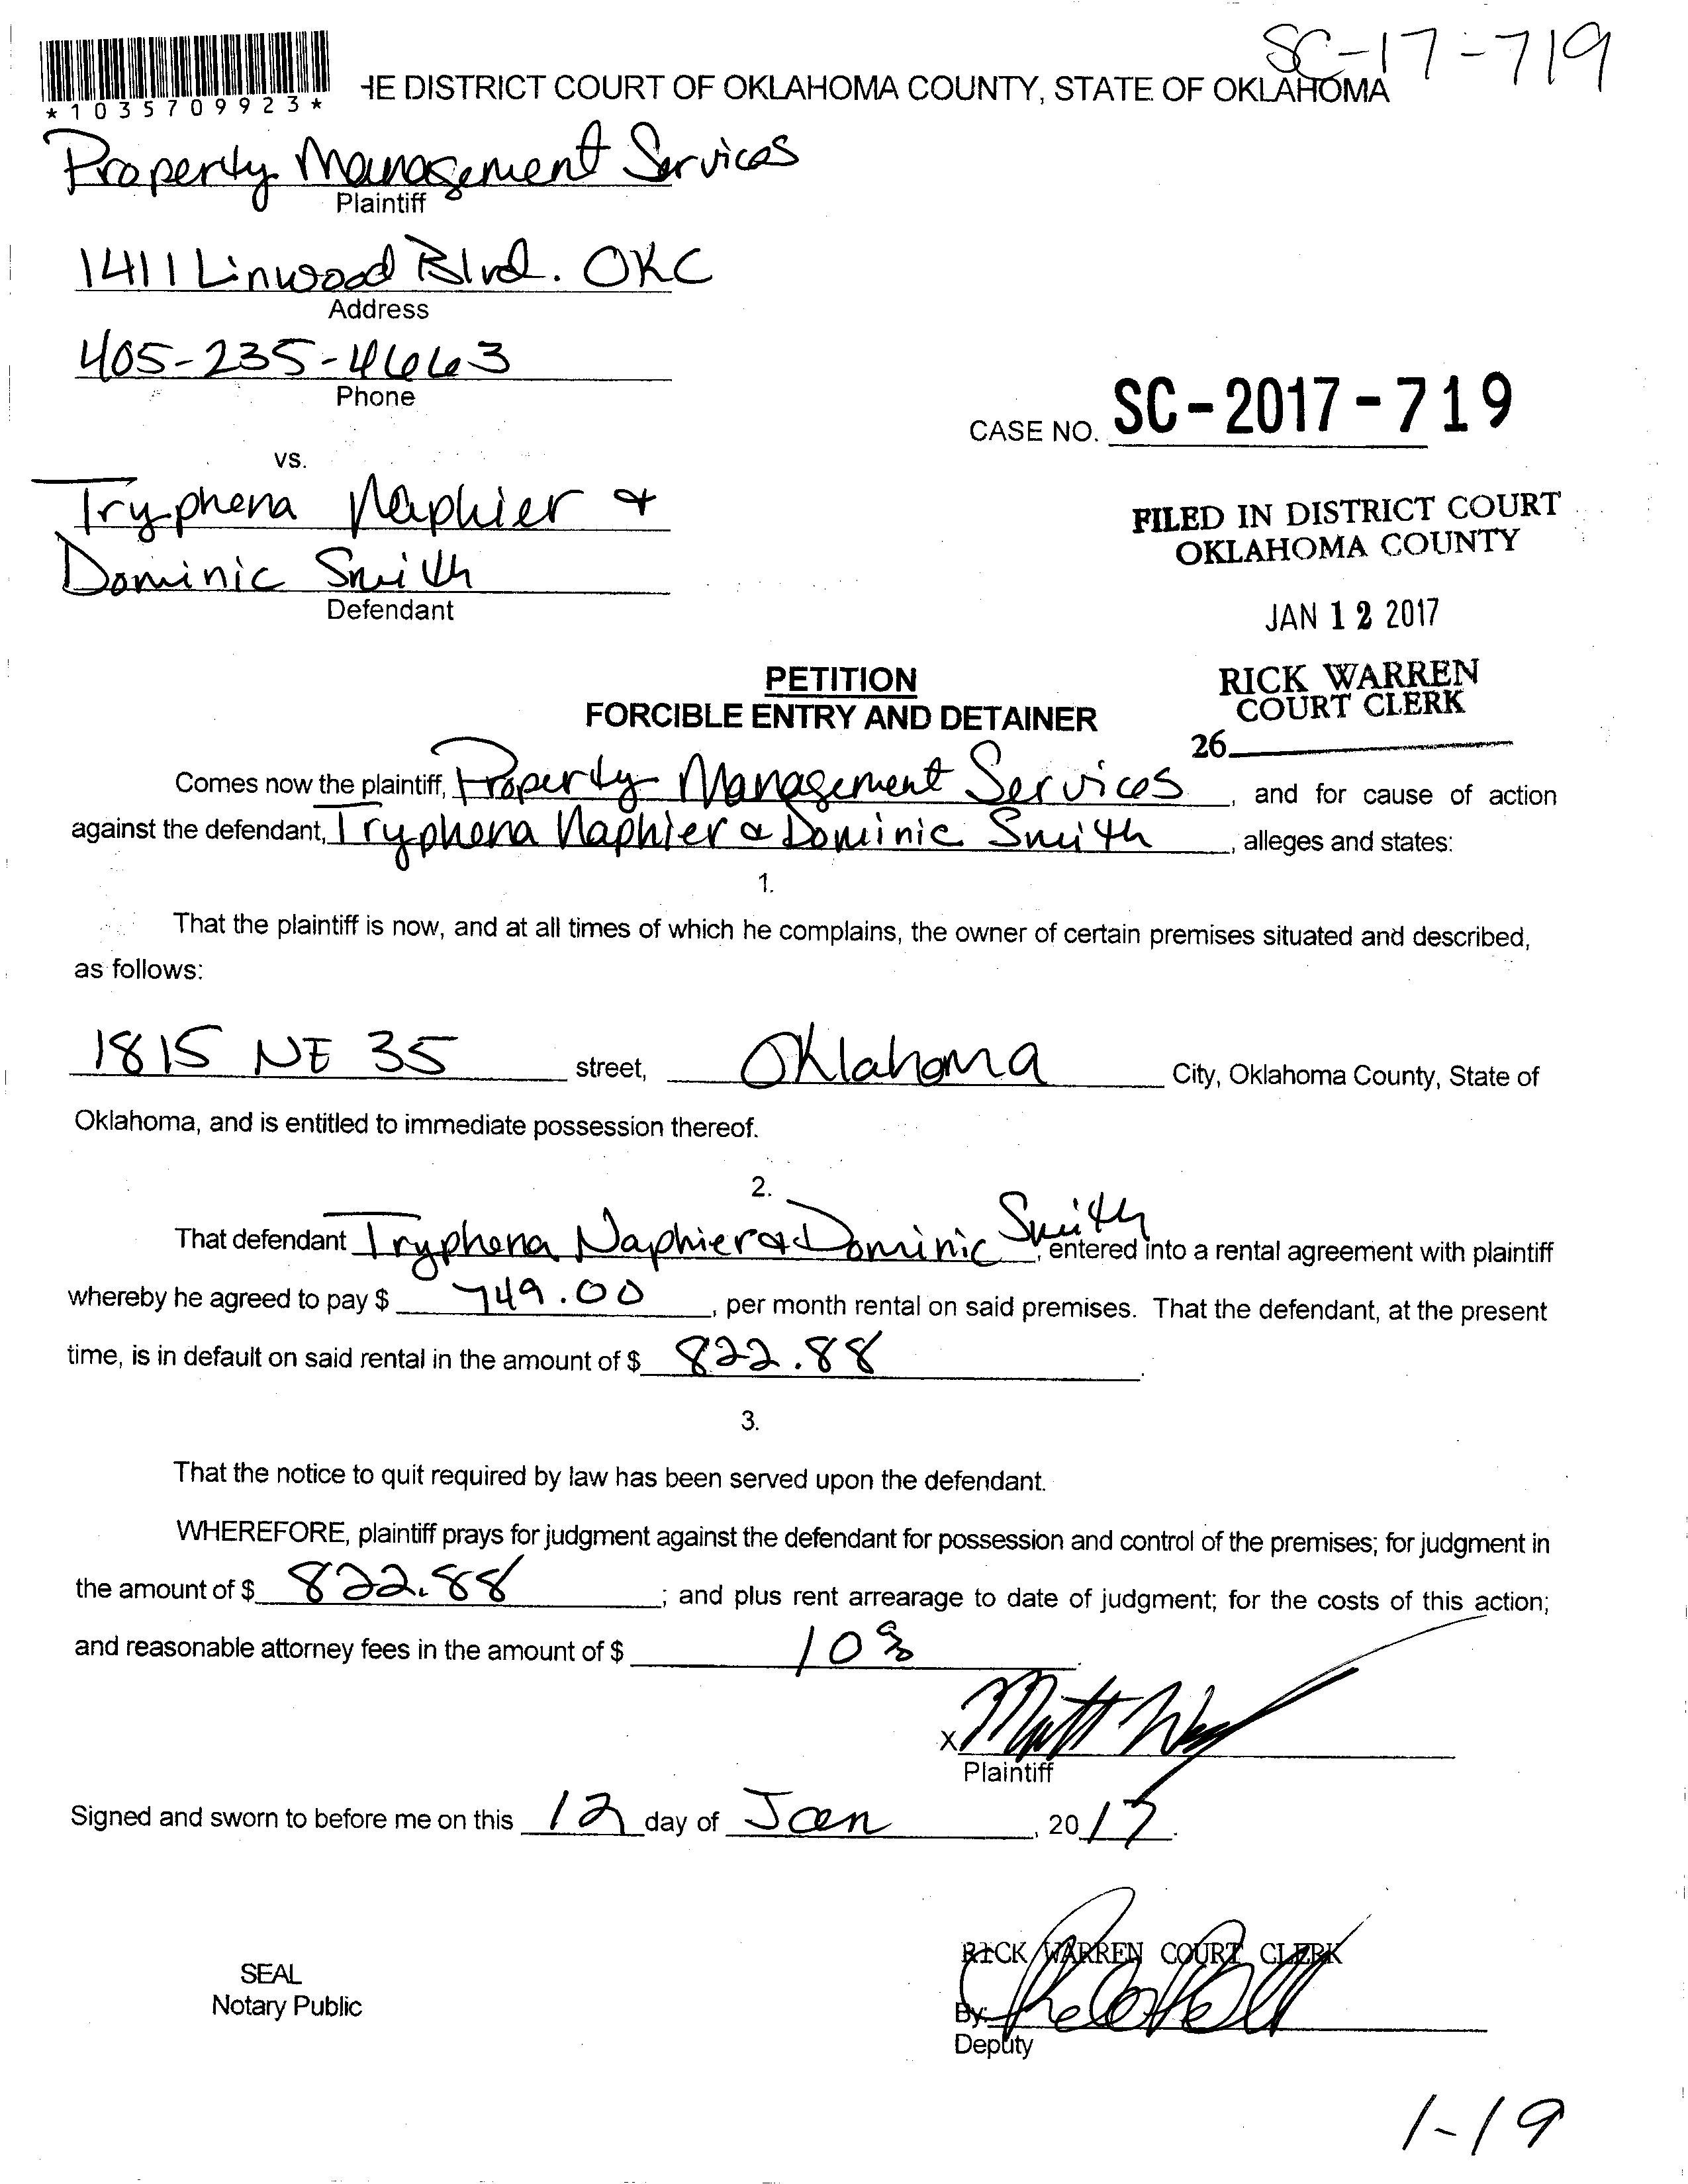 SC-17-719
*1035709923*
HE DISTRICT COURT OF OKLAHOMA COUNTY, STATE OF OKLAHOMA
Property Management Services
Plaintiff
1411 Linwood Blvd. OKC
Address
405-235-4663
Phone
CASE NO. SC-2017-719
vs.
Tryphena Naphier &
Dominic Smith
Defendant
FILED IN DISTRICT COURT
OKLAHOMA COUNTY
JAN 12 2017
RICK WARREN
COURT CLERK
26
PETITION
FORCIBLE ENTRY AND DETAINER
Comes now the plaintiff, Property Management Services, and for cause of action
against the defendant, Tryphena Naphier & Dominic Smith, alleges and states:
1.
That the plaintiff is now, and at all times of which he complains, the owner of certain premises situated and described,
as follows:
1815 NE 35 street, Oklahoma City, Oklahoma County, State of
Oklahoma, and is entitled to immediate possession thereof.
2.
That defendant Tryphena Naphier & Dominic Smith, entered into a rental agreement with plaintiff
whereby he agreed to pay $ 749.00, per month rental on said premises. That the defendant, at the present
time, is in default on said rental in the amount of $ 822.88.
3.
That the notice to quit required by law has been served upon the defendant.
WHEREFORE, plaintiff prays for judgment against the defendant for possession and control of the premises; for judgment in
the amount of $ 822.88; and plus rent arrearage to date of judgment; for the costs of this action;
and reasonable attorney fees in the amount of $ 10%.
X Matt
Plaintiff
Signed and sworn to before me on this 12 day of Jan, 2017.
SEAL
Notary Public
RICK WARREN COURT CLERK
By:
Deputy
1-19